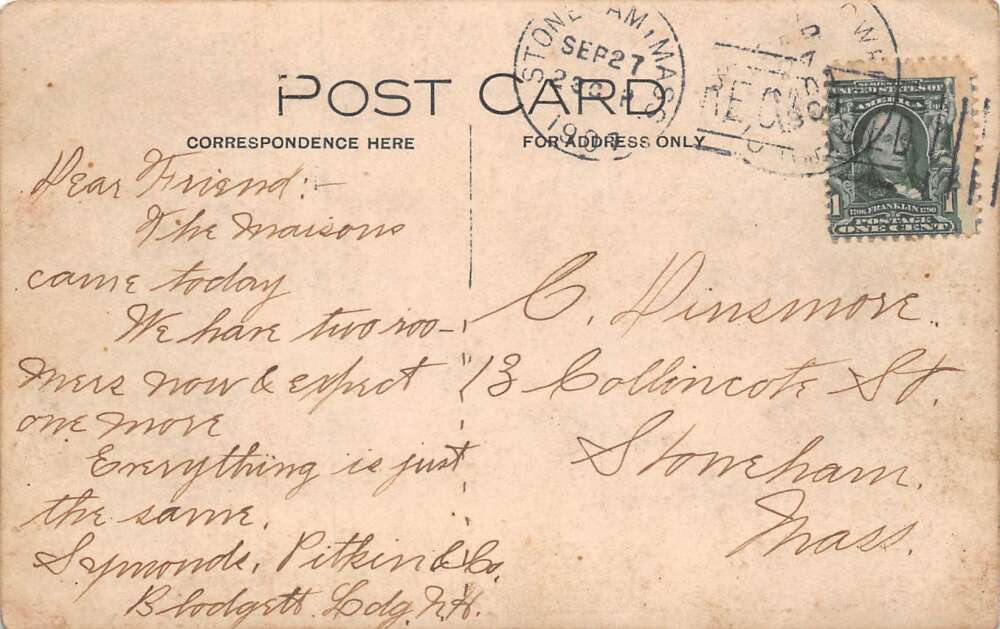 POST CARD
CORRESPONDENCE HERE
FOR ADDRESS ONLY
STONEHAM, MASS.
SEP 27
190
REC'D
SERIES 1902
UNITED STATES OF
AMERICA
1 1
1706 FRANKLIN 1790
POSTAGE
ONE CENT
Dear Friend:-
The Maisons
came today
We have two roo-
mers now & expect
one more
Everything is just
the same.
Symonds, Pitkin & Co.
Blodgett Ldg. N.H.
C. Dinsmore.
13 Collincote St.
Stoneham.
Mass.